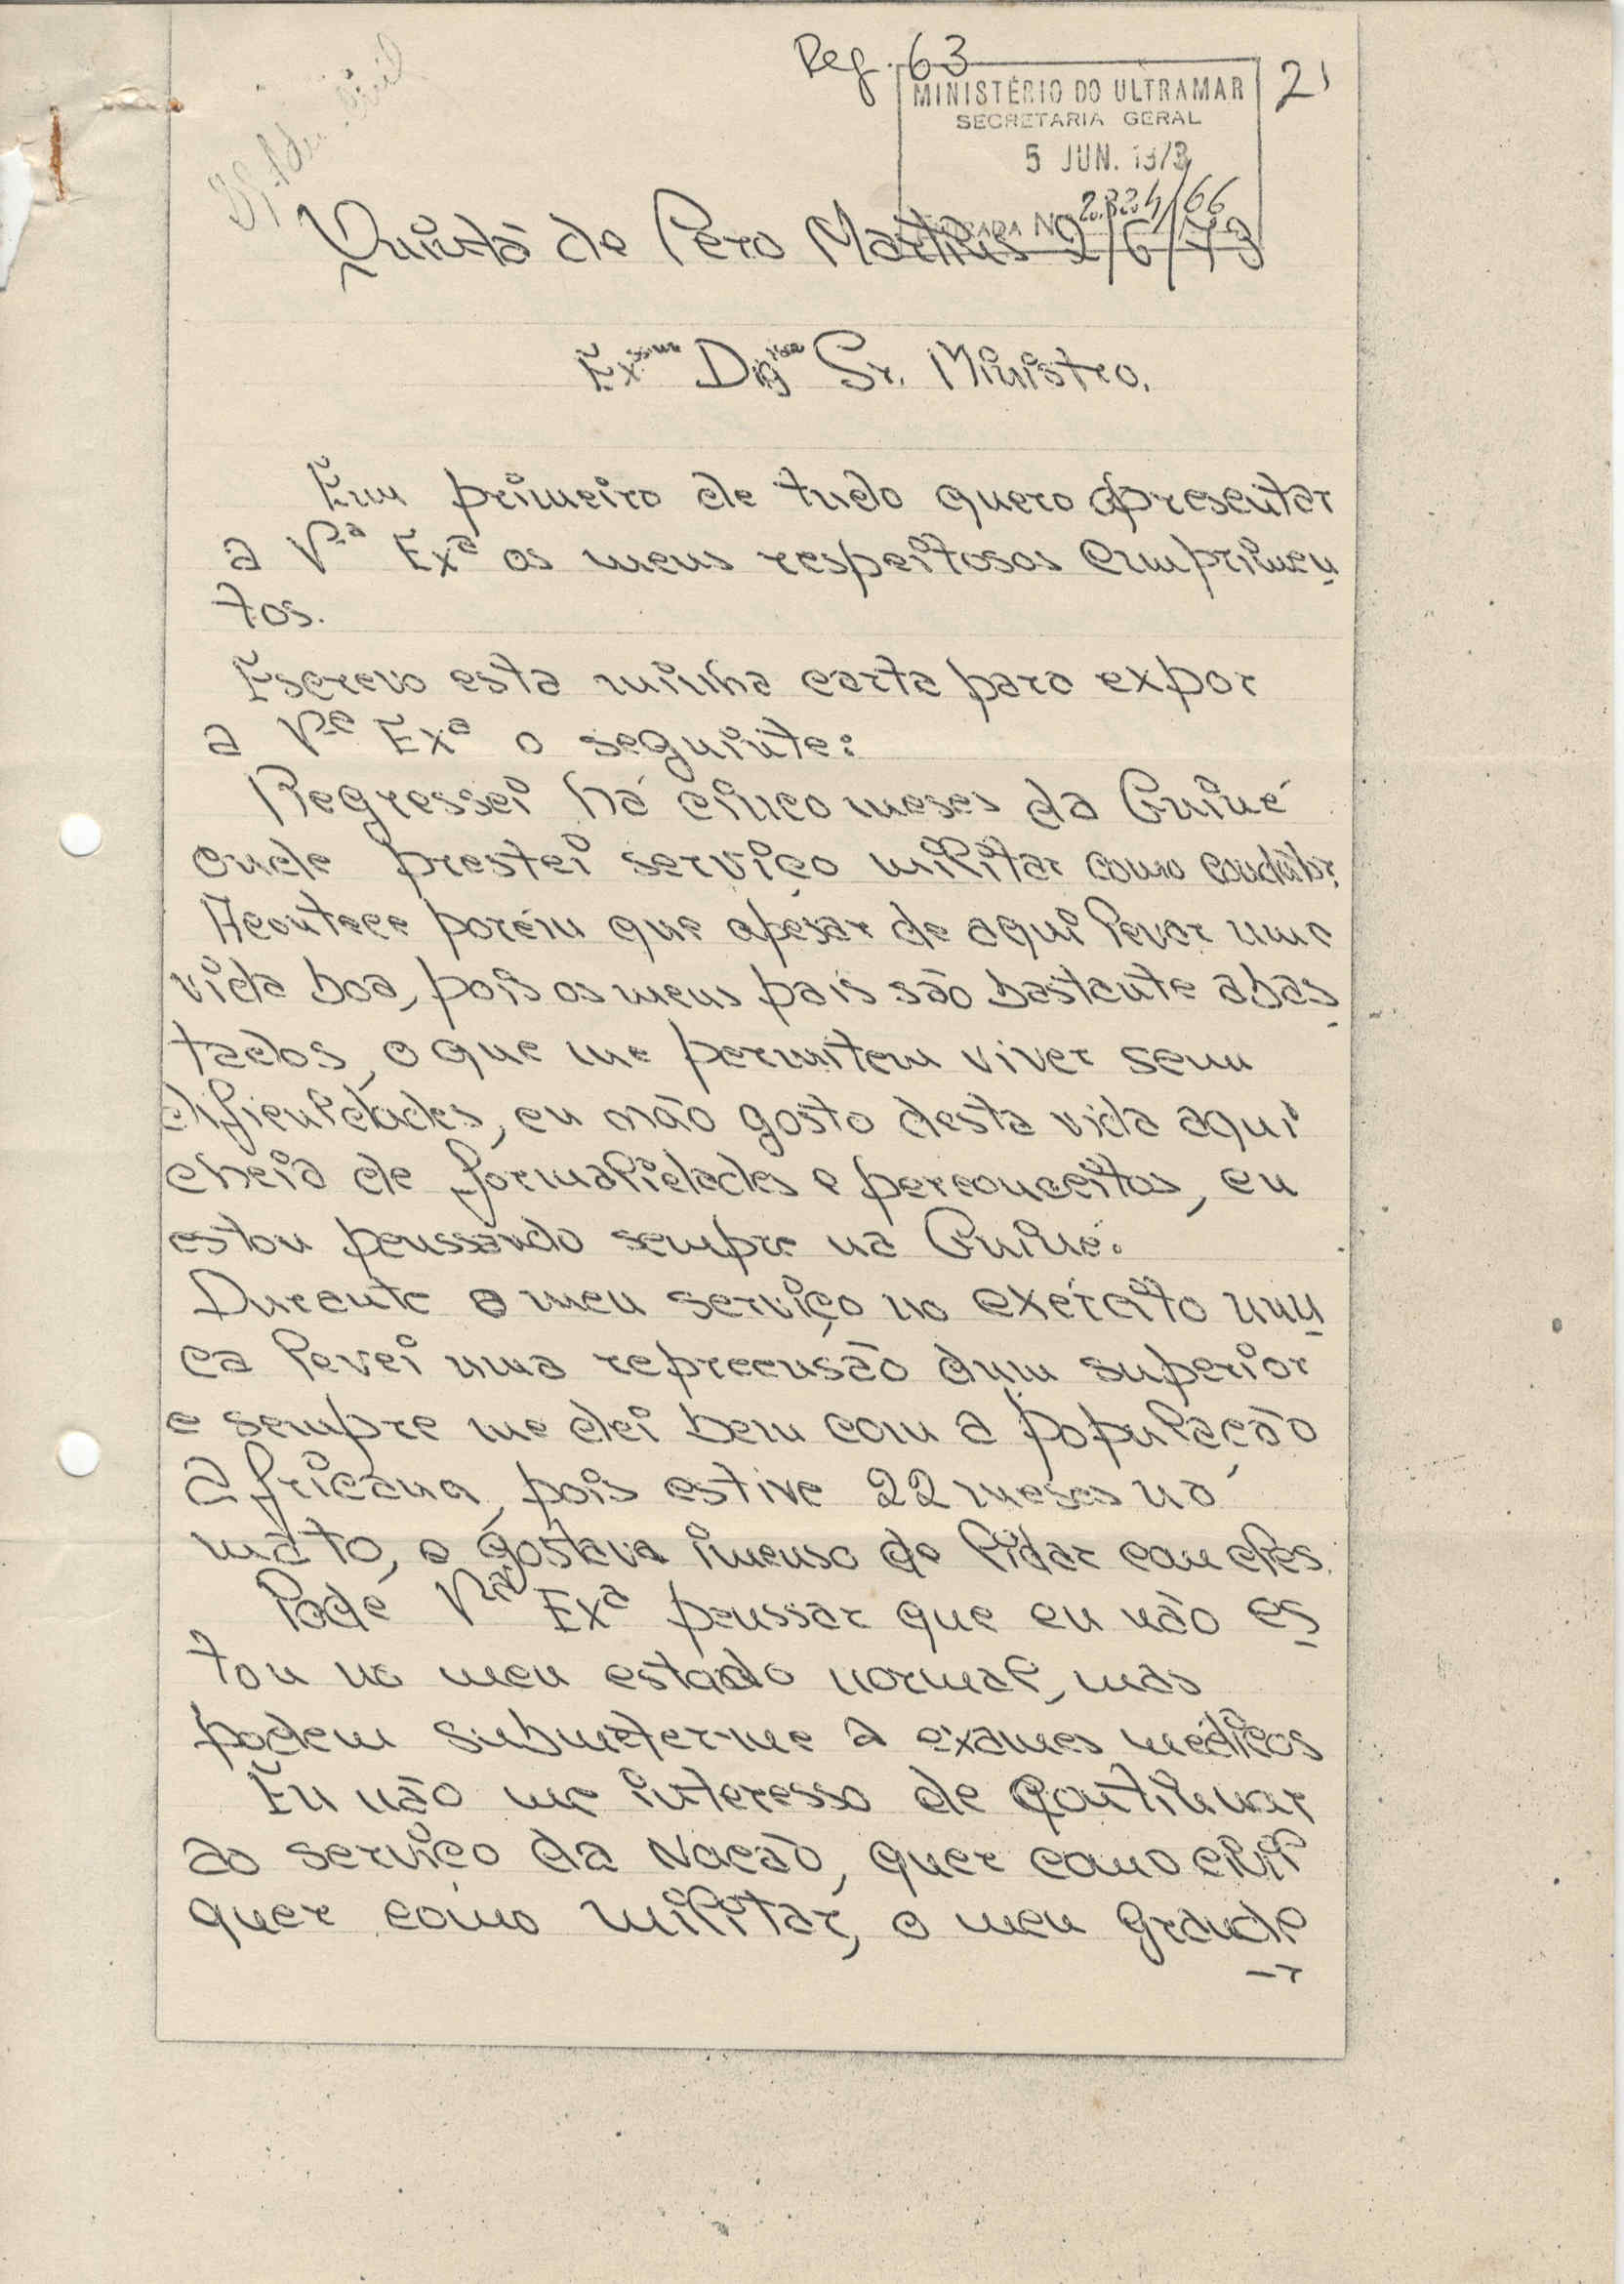 Reg. 63
MINISTÉRIO DO ULTRAMAR
SECRETARIA GERAL
5 JUN. 1973
21
Quintã de Pero Martins 2/6/73
Exmo Dgmo Sr. Ministro.
Em primeiro de tudo quero apresentar
a Vª Exª os meus respeitosos cumprimen
tos.
Escrevo esta minha carta para expor
a Vª Exª o seguinte:
Regressei há cinco meses da Guiné
onde prestei serviço militar como condutor.
Acontece porém que apesar de aqui levar uma
vida boa, pois os meus pais são bastante abas
tados, o que me permitem viver sem
dificuldades, eu não gosto desta vida aqui
cheia de formalidades e perconceitos, eu
estou penssando sempre na Guiné.
Durante o meu serviço no exército nun
ca levei uma reprecusão dum superior
e sempre me dei bem com a população
africana, pois estive 22 meses no
mato, e gostava imenso de lidar com eles.
Pode Vª Exª penssar que eu não es
tou no meu estado normal, mas
podem submeter-me a exames médicos
Eu não me interesso de continuar
ao serviço da Nação, quer como civil
quer como militar, o meu grande